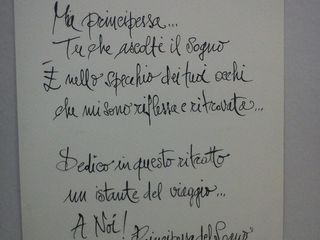 Mia principessa...
Tu che ascolti il Sogno
È nello specchio dei tuoi occhi
che mi sono riflessa e ritrovata...
Dedico in questo ritratto
un istante del viaggio...
A Noi!
Principessa del Sogno"